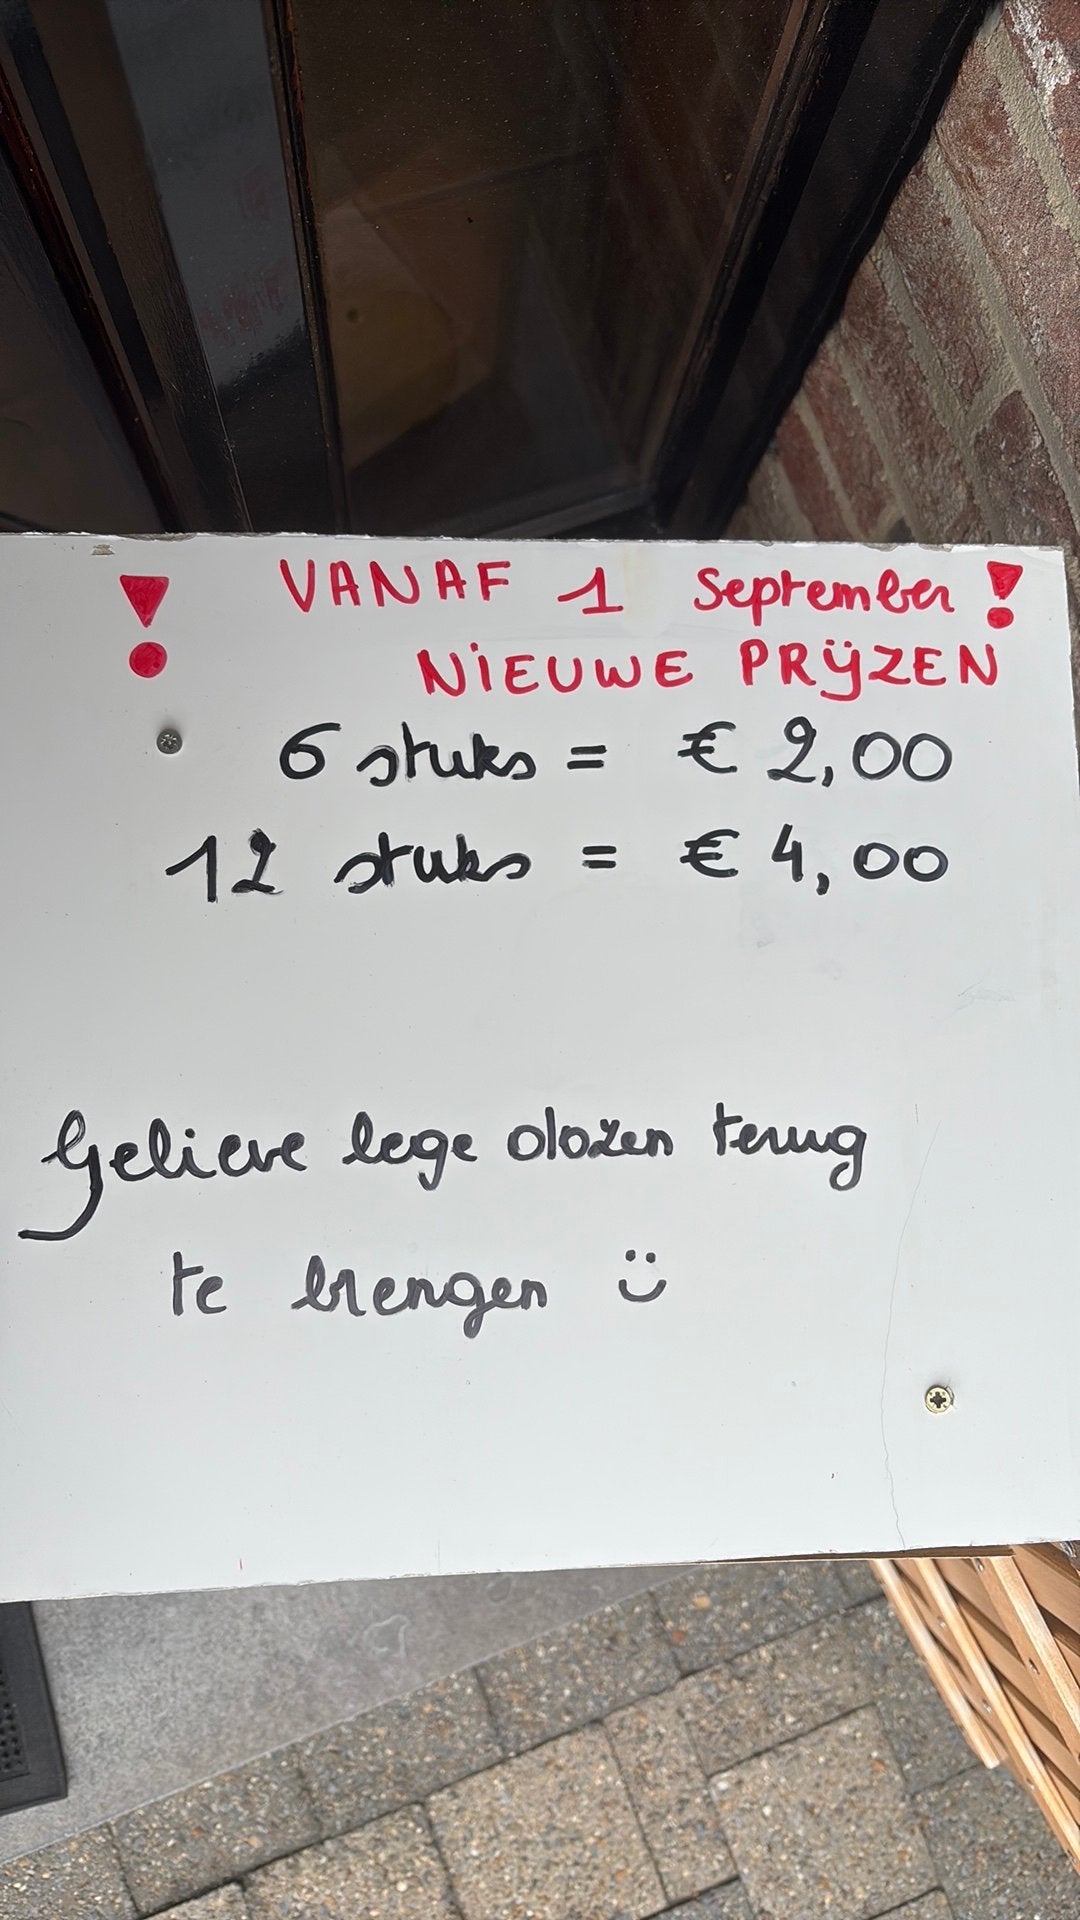 ! VANAF 1 September !
NIEUWE PRIJZEN
6 stuks = € 2,00
12 stuks = € 4,00
Gelieve lege dozen terug
te brengen ☺